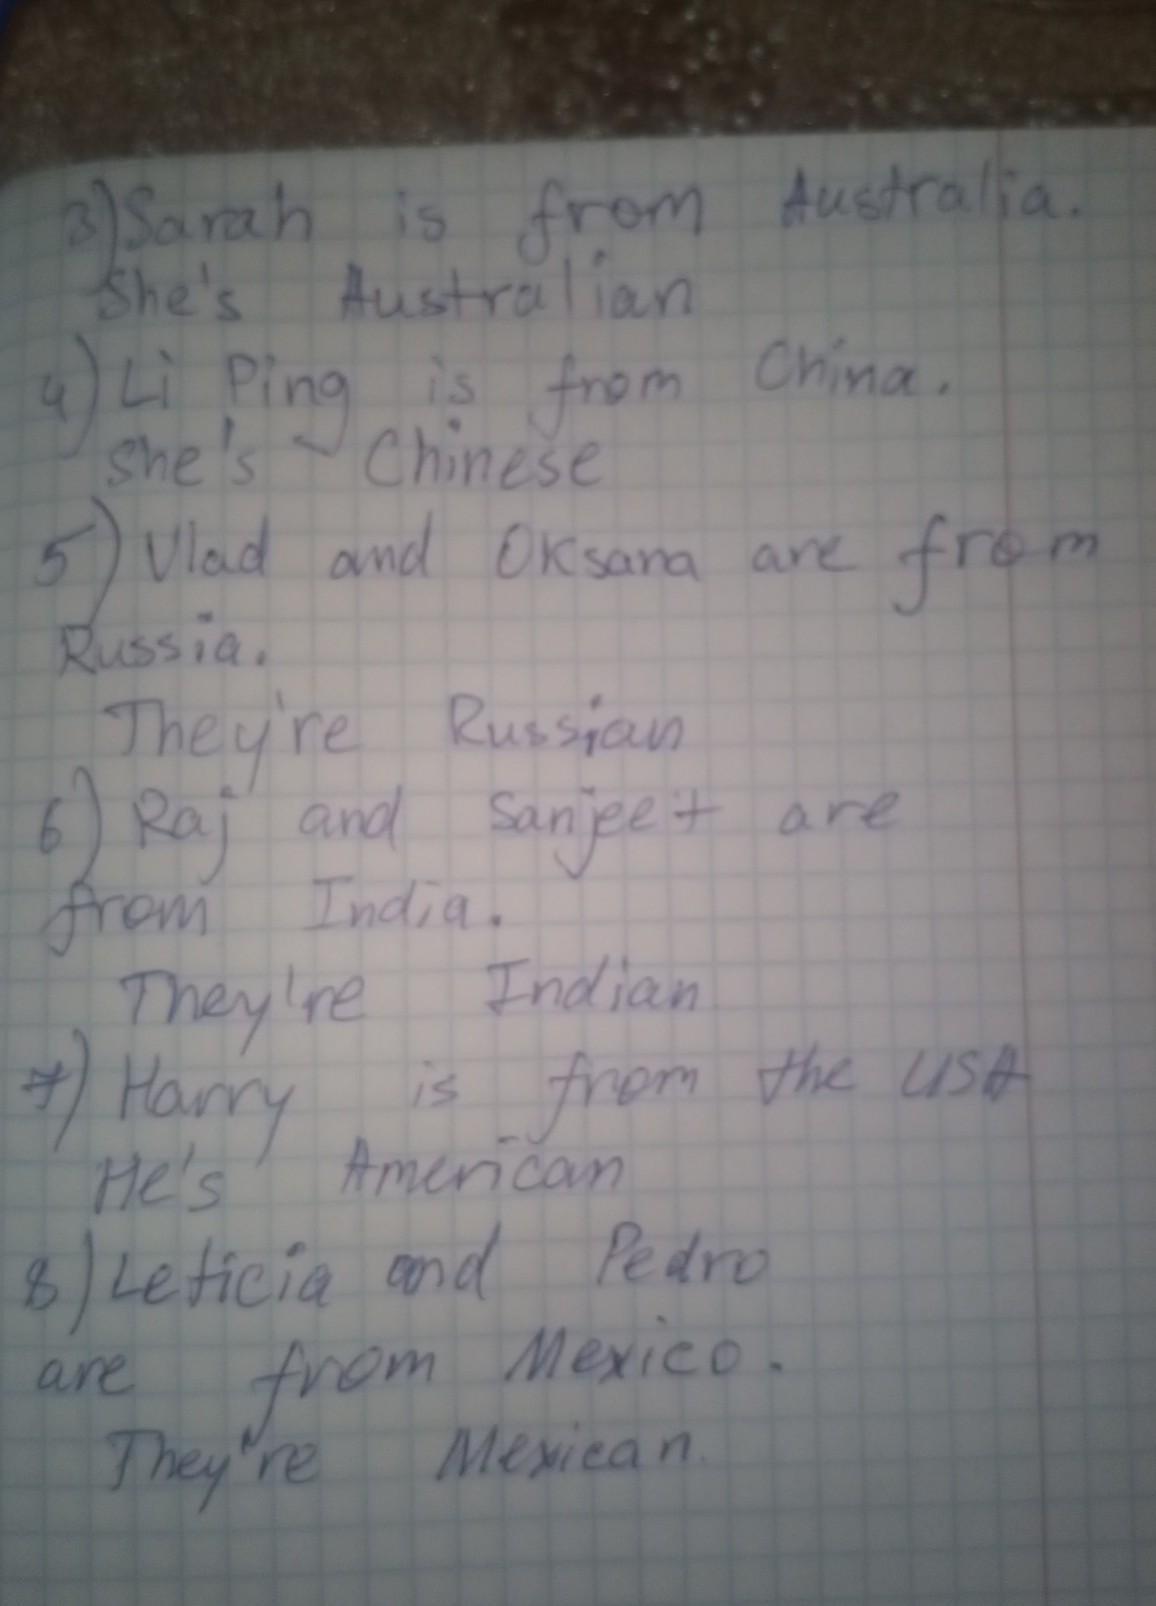 3) Sarah is from Australia.
She's Australian
4) Li Ping is from China.
She's Chinese
5) Vlad and Oksana are from
Russia.
They're Russian
6) Raj and Sanjeet are
from India.
They're Indian
7) Harry is from the USA
He's American
8) Leticia and Pedro
are from Mexico.
They're Mexican.